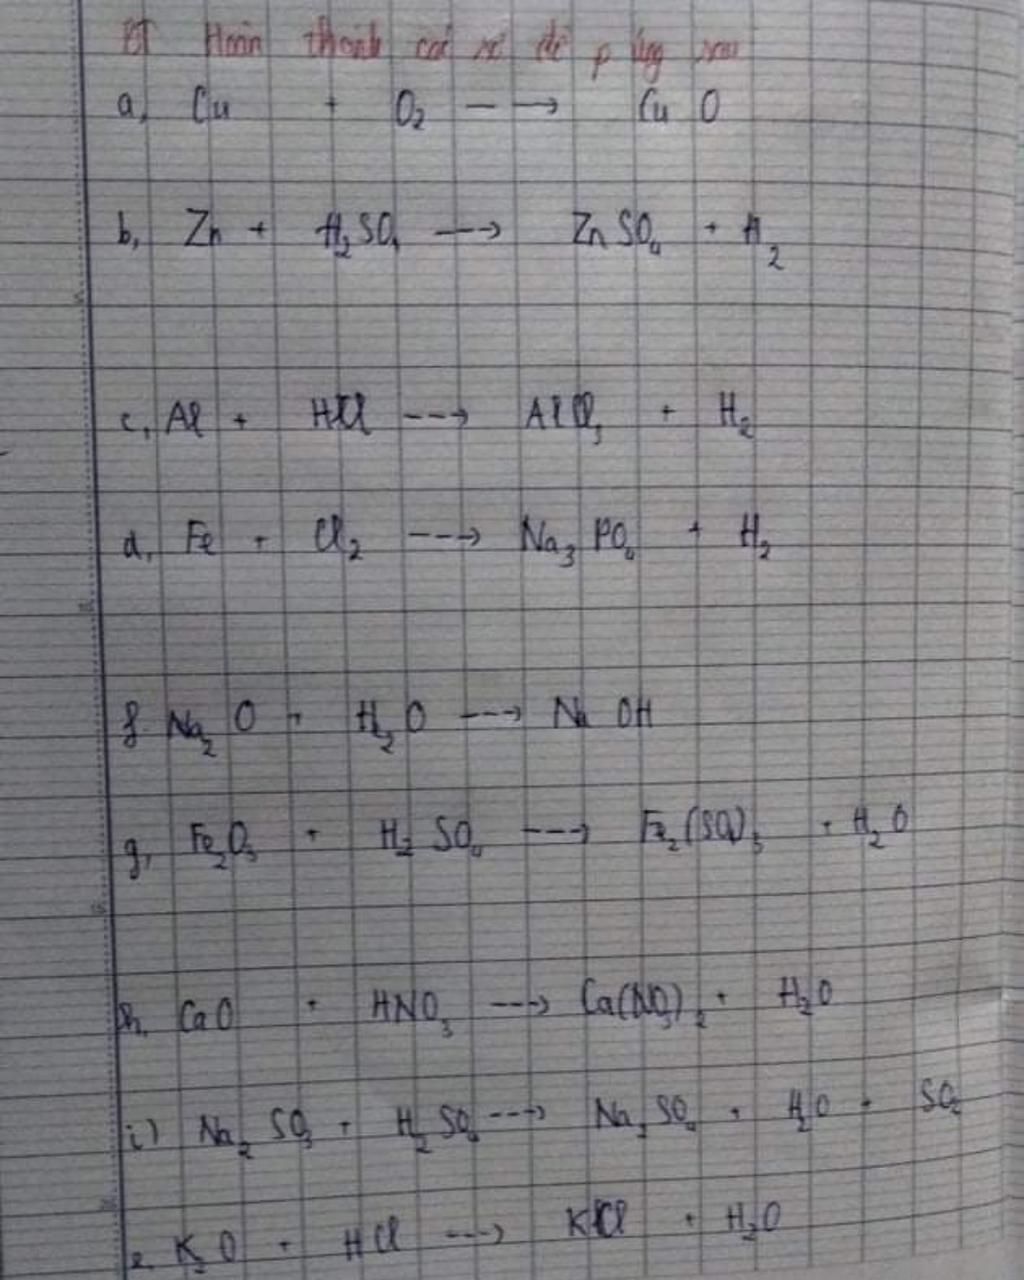 BT Hoàn thành các sơ đồ p ứng sau
a, Cu + O₂ --→ CuO
b, Zn + H₂SO₄ --→ ZnSO₄ + H₂
c, Al + HCl ---→ AlCl₃ + H₂
d, Fe + Cl₂ ---→ Na₃PO₄ + H₂
f. Na₂O + H₂O ---→ NaOH
g, Fe₂O₃ + H₂SO₄ ---→ Fe₂(SO₄)₃ + H₂O
h. CaO + HNO₃ ---→ Ca(NO₃)₂ + H₂O
i) Na₂SO₃ + H₂SO₄ ---→ Na₂SO₄ + H₂O + SO₂
e. K₂O + HCl ---→ KCl + H₂O